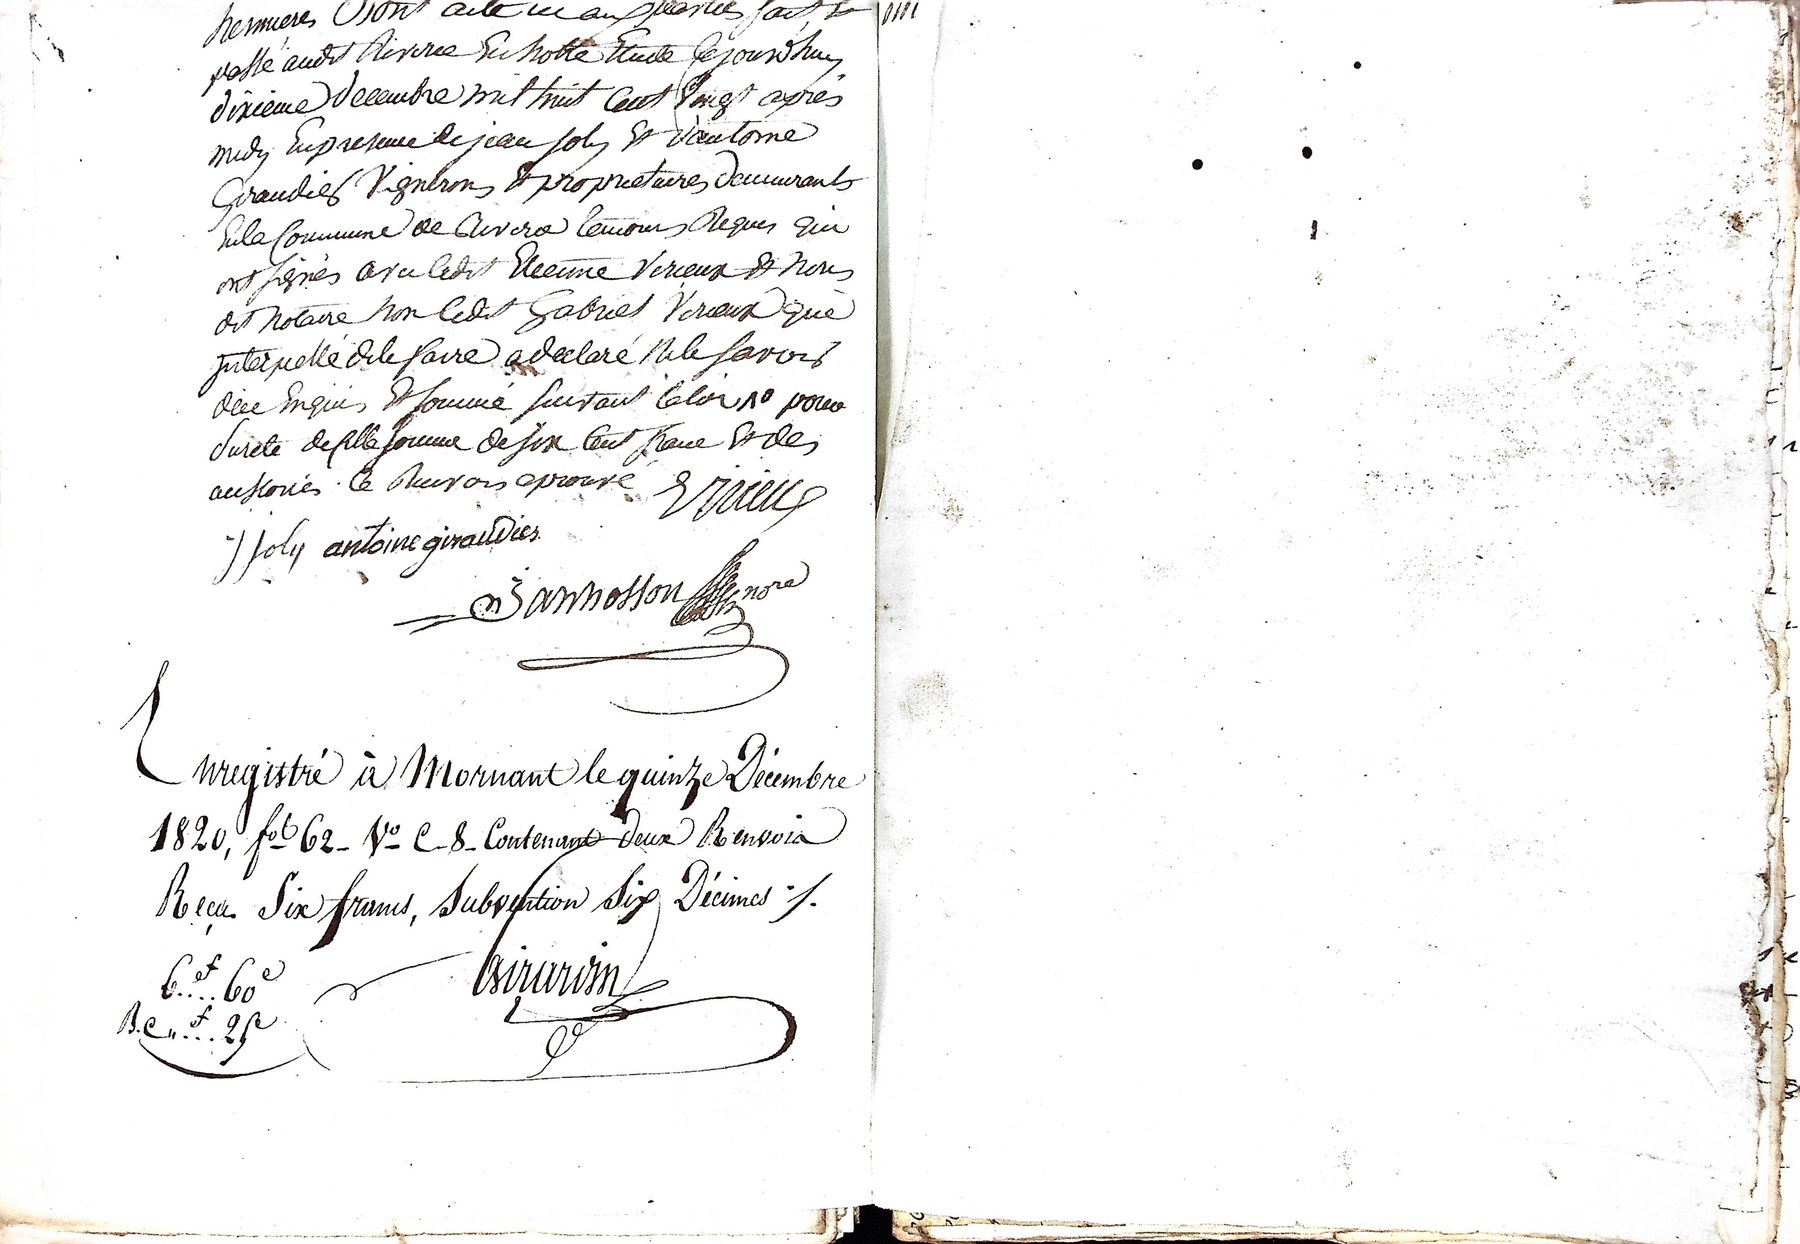 hermieres Dont acte au aux parties fait &
passé audit Riverie En notre Etude Cejourd'huy
dixieme Decembre mil huit Cent Vingt après
midy En presence de jean joly Et d'antoine
Giraudier Vignerons & proprietaires demeurants
En la Commune de Riverie temoins Requis qui
ont signés avec ledit Etienne Virieux & Nous
dit Notaire non ledit Gabriel Virieux qui
Interpellé de le faire a declaré Ne le savoir
de ce Enquis & sommé suivant la loi pour
sureté de somme de six Cent franc Et des
Ce Renvois aprouvé Virieux
J joly antoine giraudier
nore
Enregistré à Mornant le quinze Décembre
1820, fol 62 Vo C. 8. Contenant deux Renvois
Reçu Six francs, Subvention Six Décimes ./.
6.f... 60c
Girardin
25